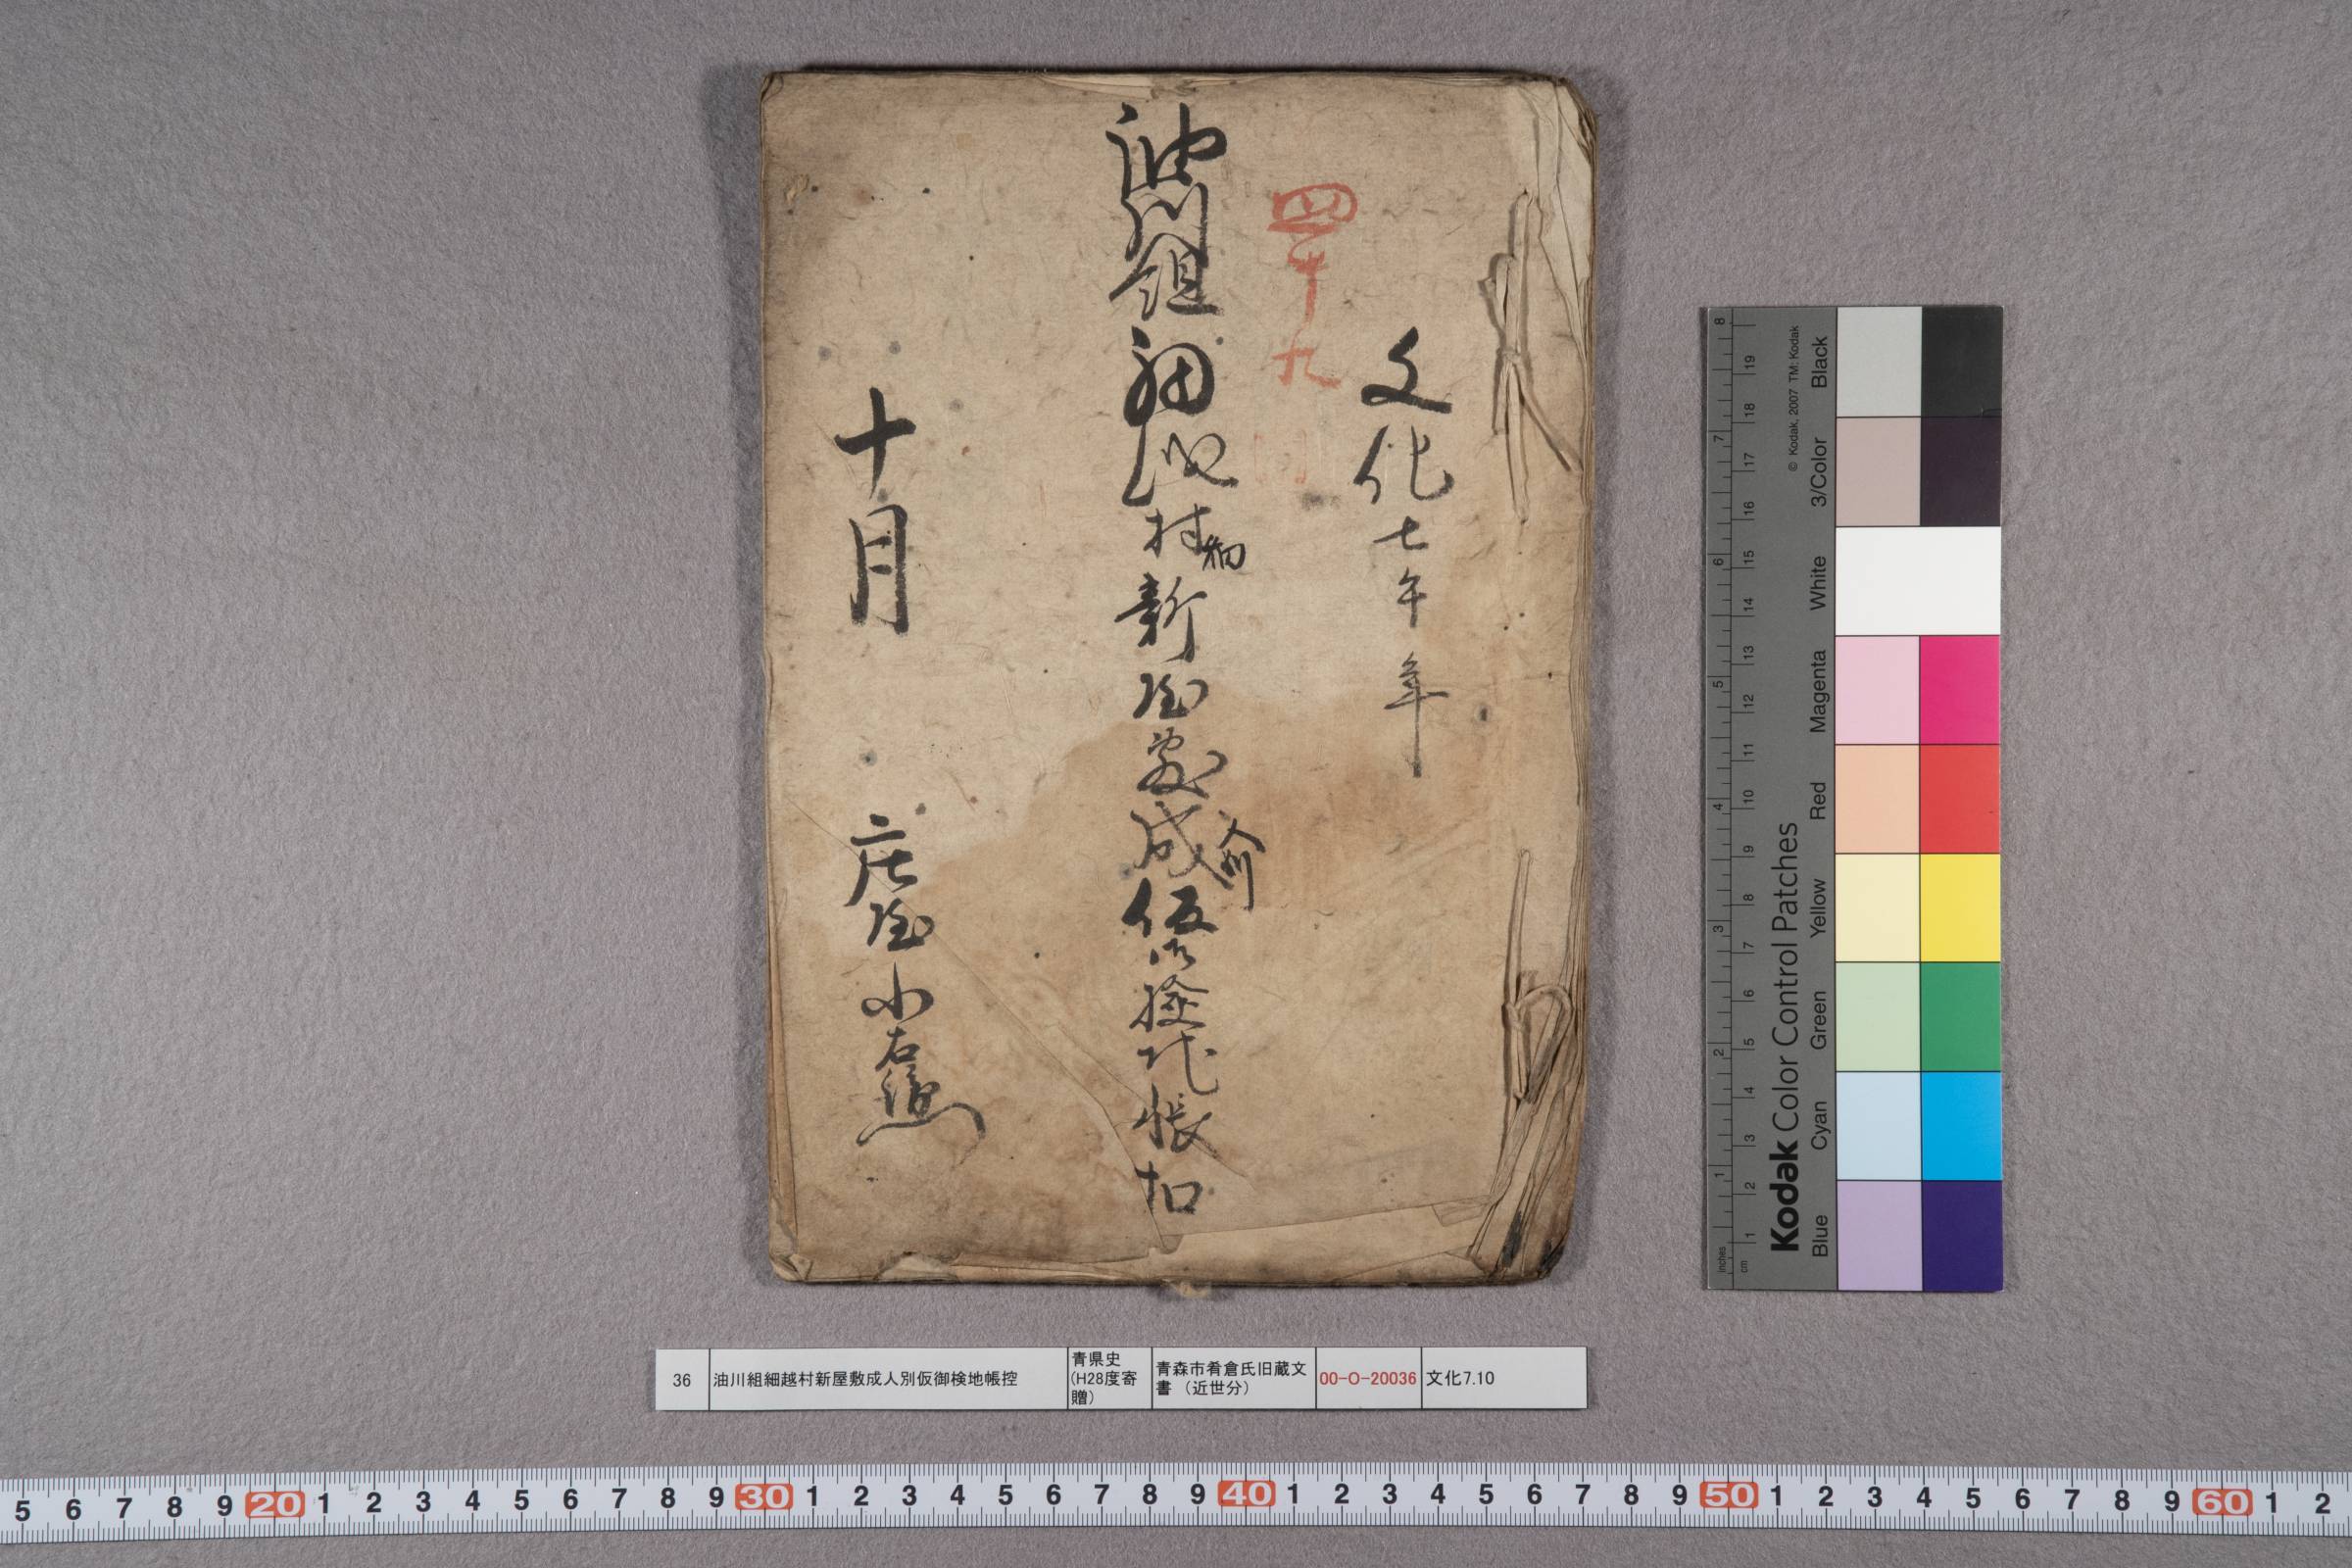 文化七午年
四十九
油川組細越村新屋敷成人別仮御検地帳扣
十月　庄屋小右衛門
36 油川組細越村新屋敷成人別仮御検地帳控 青県史(H28度寄贈) 青森市肴倉氏旧蔵文書（近世分） 00-O-20036 文化7.10
Kodak Color Control Patches
© Kodak, 2007 TM: Kodak
Blue Cyan Green Yellow Red Magenta White 3/Color Black
inches 1 2 3 4 5 6 7 8
cm 1 2 3 4 5 6 7 8 9 10 11 12 13 14 15 16 17 18 19
5 6 7 8 9 20 1 2 3 4 5 6 7 8 9 30 1 2 3 4 5 6 7 8 9 40 1 2 3 4 5 6 7 8 9 50 1 2 3 4 5 6 7 8 9 60 1 2